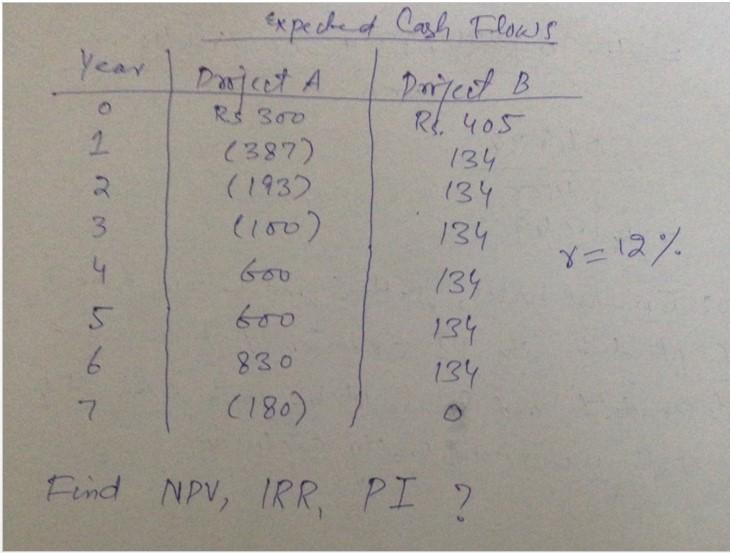 Expected Cash Flows
Year Project A Project B
0 Rs 300 Rs. 405
1 (387) 134
2 (193) 134
3 (100) 134
r = 12%
4 600 134
5 600 134
6 830 134
7 (180) 0
Find NPV, IRR, PI ?